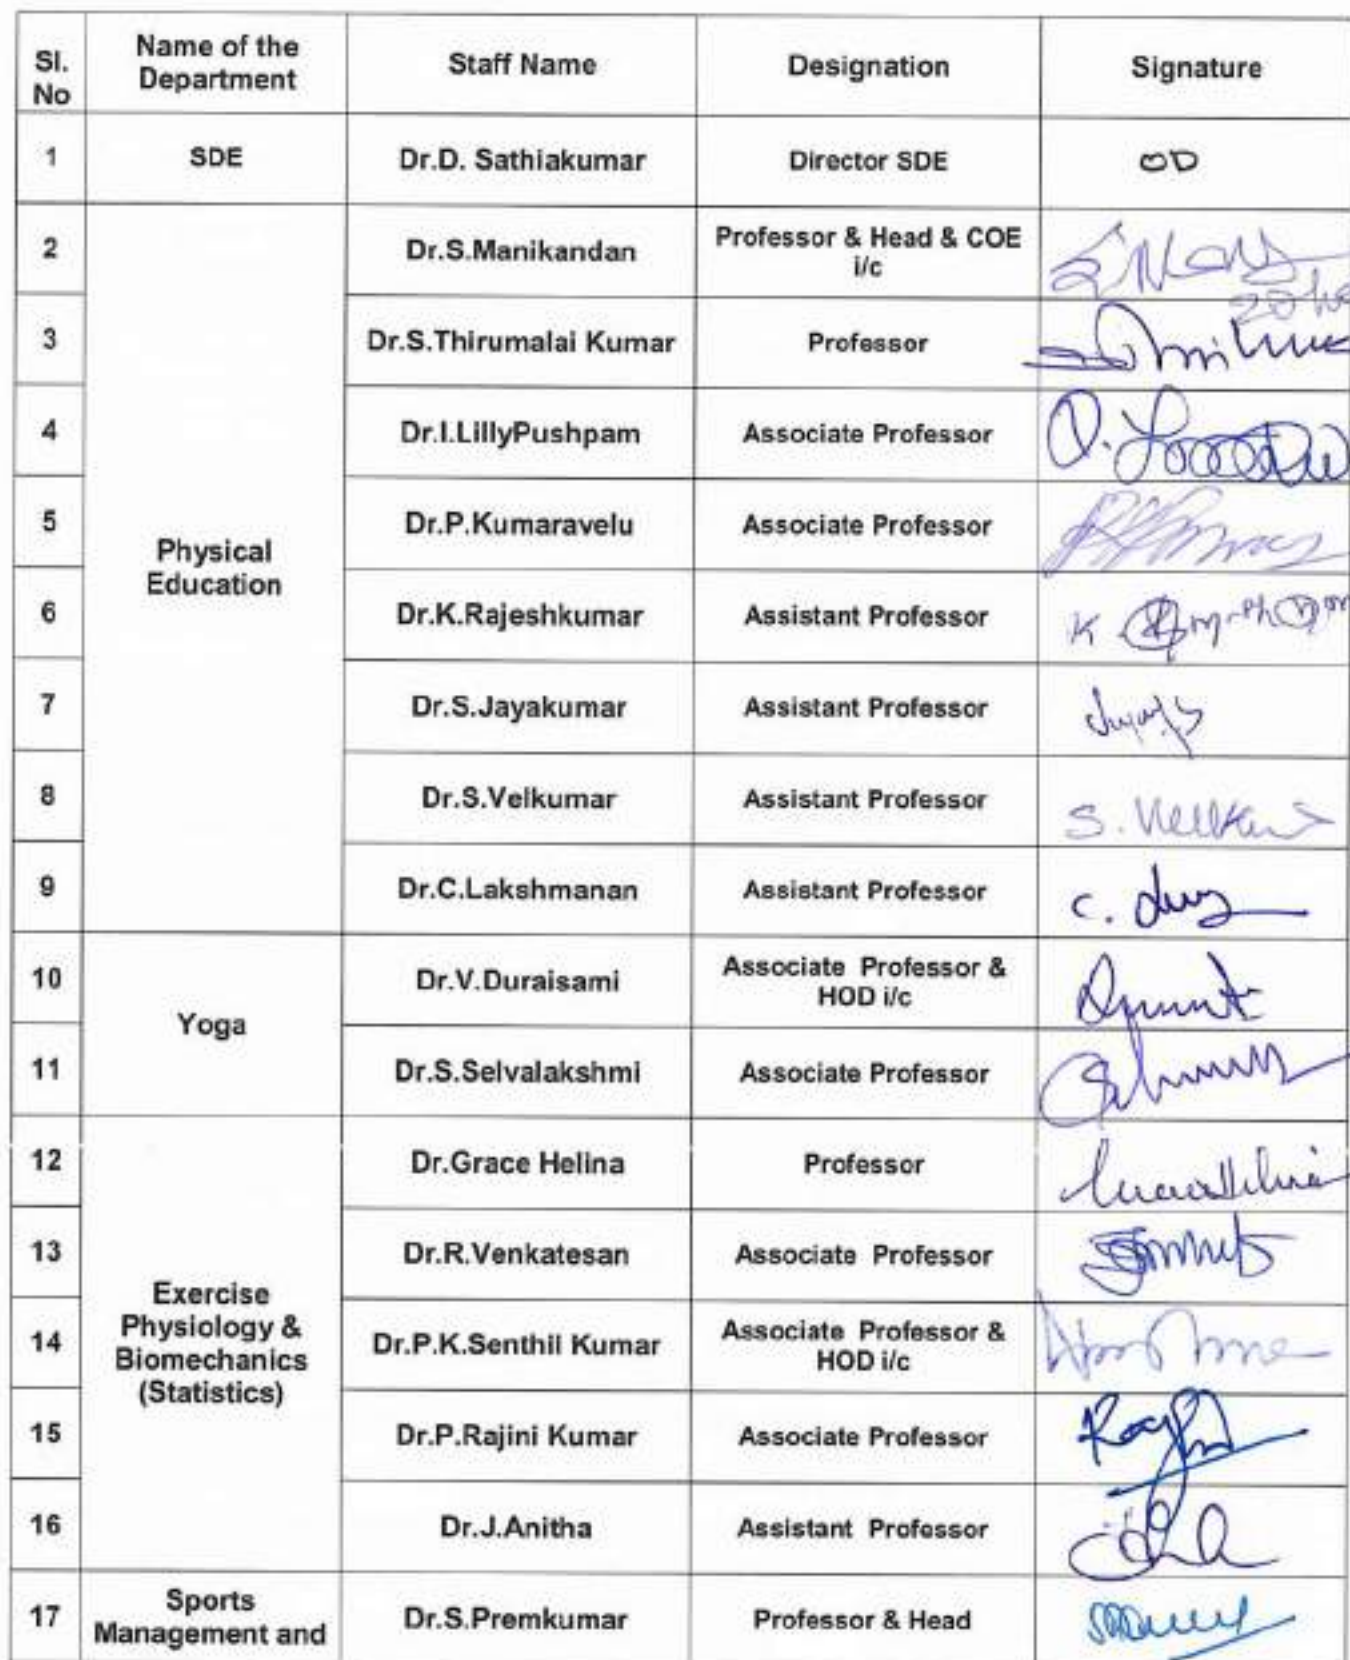 Sl. No
Name of the Department
Staff Name
Designation
Signature
1
SDE
Dr.D. Sathiakumar
Director SDE
OD
2
Physical Education
Dr.S.Manikandan
Professor & Head & COE i/c
3
Dr.S.Thirumalai Kumar
Professor
4
Dr.I.LillyPushpam
Associate Professor
5
Dr.P.Kumaravelu
Associate Professor
6
Dr.K.Rajeshkumar
Assistant Professor
7
Dr.S.Jayakumar
Assistant Professor
8
Dr.S.Velkumar
Assistant Professor
9
Dr.C.Lakshmanan
Assistant Professor
10
Yoga
Dr.V.Duraisami
Associate Professor & HOD i/c
11
Dr.S.Selvalakshmi
Associate Professor
12
Exercise Physiology & Biomechanics (Statistics)
Dr.Grace Helina
Professor
13
Dr.R.Venkatesan
Associate Professor
14
Dr.P.K.Senthil Kumar
Associate Professor & HOD i/c
15
Dr.P.Rajini Kumar
Associate Professor
16
Dr.J.Anitha
Assistant Professor
17
Sports Management and
Dr.S.Premkumar
Professor & Head